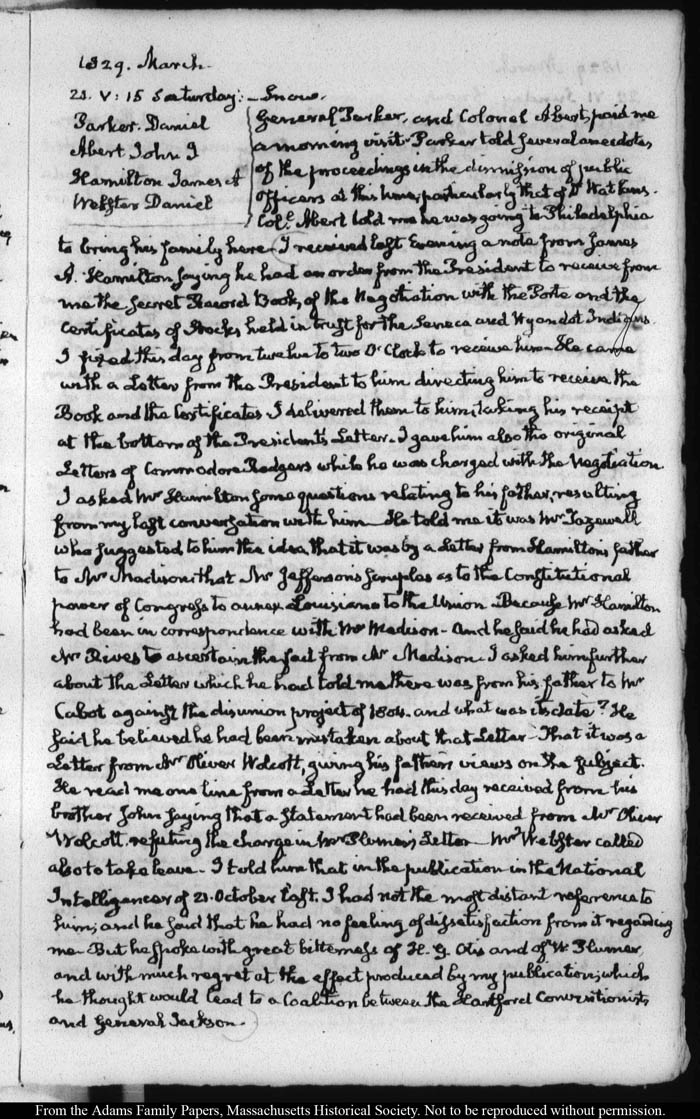 1829. March.
21. V: 15 Saturday: — Snow.
Parker. Daniel
Abert John J
Hamilton James A
Webster Daniel
General Parker, and Colonel Abert, paid me
a morning visit. Parker told several anecdotes
of the proceedings in the dismission of public
Officers at this time, particularly that of Dr Watkins.
Col.l Abert told me he was going to Philadelphia
to bring his family here. I received last Evening a note from James
A. Hamilton saying he had an order from the President to receive from
me the secret Record Book, of the Negotiation with the Porte and the
Certificates of Stocks held in trust for the Seneca and Wyandot Indians.
I fixed this day from twelve to two O'Clock to receive him. He came
with a Letter from the President to him directing him to receive the
Book and the Certificates. I delivered them to him, taking his receipt
at the bottom of the President's Letter. I gave him also the original
Letters of Commodore Rodgers while he was charged with the Negotiation
I asked Mr Hamilton some questions relating to his father, resulting
from my last conversation with him. He told me it was Mr Tazewell
who suggested to him the idea, that it was by a Letter from Hamiltons father
to Mr Madison that Mr Jeffersons scruples as to the Constitutional
power of Congress to annex Louisiana to the Union. Because Mr Hamilton
had been in correspondence with Mr Madison - and he said he had asked
Mr Rives to ascertain the fact from Mr Madison. I asked him further
about the Letter which he had told me there was from his father to Mr
Cabot against the disunion project of 1804. and what was its date? He
said he believed he had been mistaken about that Letter - That it was a
Letter from Mr Oliver Wolcott, giving his fathers views on the subject.
He read me one line from a Letter he had this day received from his
brother John saying that a statement had been received from Mr Oliver
Wolcott, refuting the charge in Mr Plumer's Letter. Mr Webster called
also to take leave - I told him that in the publication in the National
Intelligencer of 21. October last. I had not the most distant reference to
him; and he said that he had no feeling of dissatisfaction from it regarding
me. But he spoke with great bitterness of H. G. Otis and of W. Plumer,
and with much regret at the effect produced by my publication; which
he thought would lead to a Coalition between the Hartford Conventionists
and General Jackson.
From the Adams Family Papers, Massachusetts Historical Society. Not to be reproduced without permission.